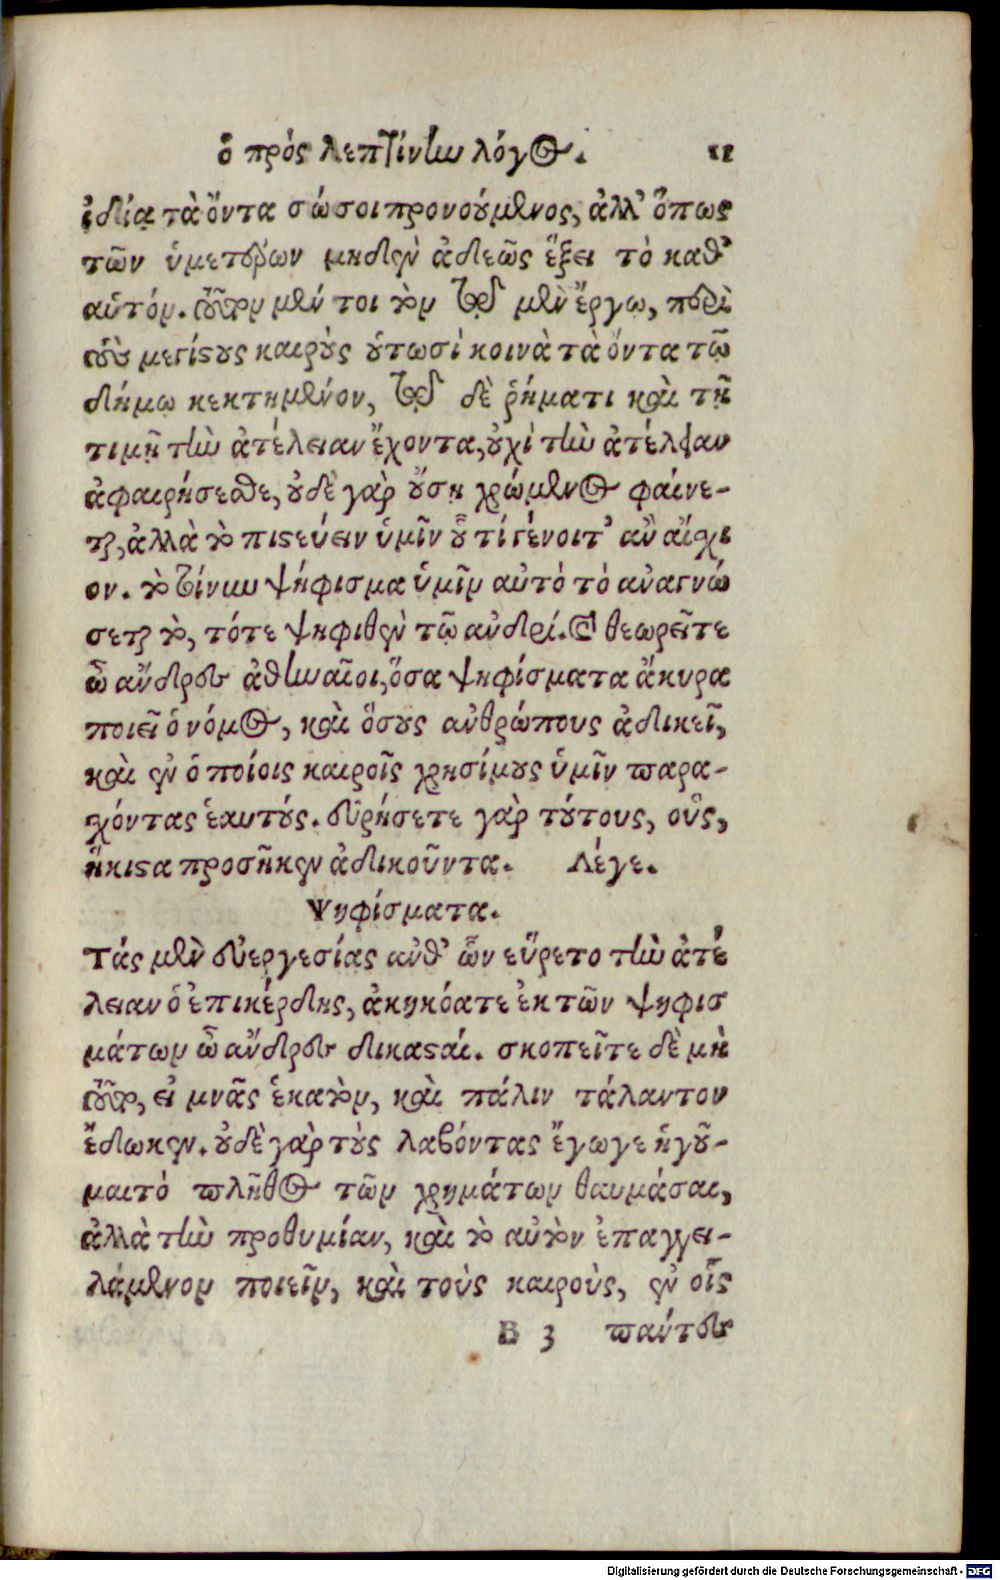 ὁ πρὸς λεπτίνην λόγος. 11
ἰδίᾳ τὰ ὄντα σώσοι προνούμενος, ἀλλ' ὅπως
τῶν ὑμετέρων μηδὲν ἀδεῶς ἕξει τὸ καθ'
αὑτόν. τοῦτον μέν τοι τὸν τῷ μὲν ἔργῳ, περὶ
τοὺς μεγίστους καιροὺς οὑτωσὶ κοινὰ τὰ ὄντα τῷ
δήμῳ κεκτημένον, τῷ δὲ ῥήματι καὶ τῇ
τιμῇ τὴν ἀτέλειαν ἔχοντα, οὐχὶ τὴν ἀτέλειαν
ἀφαιρήσεσθε, οὐδὲ γὰρ οὔσῃ χρώμενος φαίνε-
ται, ἀλλὰ τὸ πιστεύειν ὑμῖν οὗ τί γένοιτ' ἂν αἴσχι
ον. τὸ τοίνυν ψήφισμα ὑμῖν αὐτὸ τὸ ἀναγνώ
σεται τὸ, τότε ψηφισθὲν τῷ ἀνδρί. Καὶ θεωρεῖτε
ὦ ἄνδρες ἀθηναῖοι, ὅσα ψηφίσματα ἄκυρα
ποιεῖ ὁ νόμος, καὶ ὅσους ἀνθρώπους ἀδικεῖ,
καὶ ἐν ὁποίοις καιροῖς χρησίμους ὑμῖν παρα-
χόντας ἑαυτούς. εὑρήσετε γὰρ τούτους, οὓς,
ἥκιστα προσῆκεν ἀδικοῦντα. Λέγε.
Ψηφίσματα.
Τὰς μὲν εὐεργεσίας ἀνθ' ὧν εὕρετο τὴν ἀτέ
λειαν ὁ ἐπικέρδης, ἀκηκόατε ἐκ τῶν ψηφισ
μάτων ὦ ἄνδρες δικασταί. σκοπεῖτε δὲ μὴ
τοῦτο, εἰ μνᾶς ἑκατὸν, καὶ πάλιν τάλαντον
ἔδωκεν. οὐδὲ γὰρ τοὺς λαβόντας ἔγωγε ἡγοῦ-
μαι τὸ πλῆθος τῶν χρημάτων θαυμάσαι,
ἀλλὰ τὴν προθυμίαν, καὶ τὸ αὐτὸν ἐπαγγει-
λάμενον ποιεῖν, καὶ τοὺς καιροὺς, ἐν οἷς
B 3 πάντες